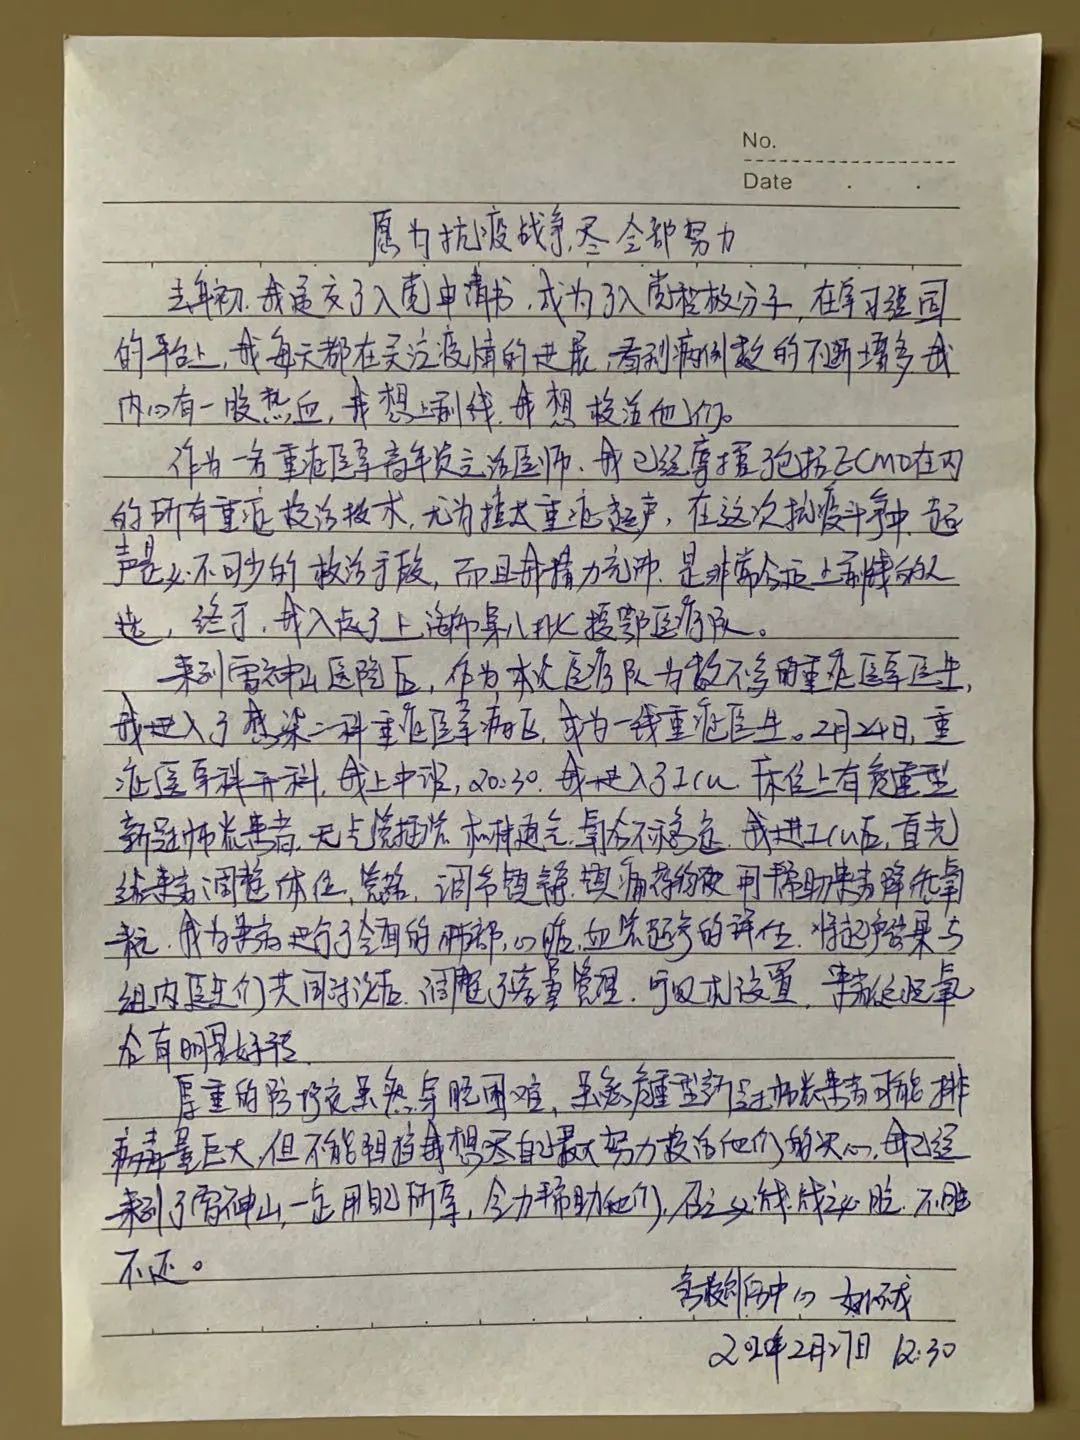 No.
Date
愿为抗疫战争,尽全部努力
去年初,我递交了入党申请书,成为了入党积极分子,在学习强国
的平台上,我每天都在关注疫情的进展,看到病例数的不断增多,我
内心有一股热血,我想上前线,我想救治他们。
作为一名重症医学高年资主治医师,我已经掌握了包括ECMO在内
的所有重症救治技术,尤为擅长重症超声,在这次抗疫斗争中,超
声是必不可少的救治手段,而且我精力充沛,是非常合适上前线的人
选,终于,我入选了上海市第八批援鄂医疗队。
来到雷神山医院后,作为本次医疗队为数不多的重症医学医生,
我进入了感染二科重症医学病区,成为一线重症医生。2月24日,重
症医学科开科,我上中班,20:30,我进入了ICU,床位上有危重型
新冠肺炎患者,气管插管机械通气,氧合不稳定,我进ICU后,首先
给患者调整体位,管路,调节镇静镇痛药物使用帮助患者降低氧
耗,我为患者进行了全面的肺部,心脏,血管超声的评估,将超声结果与
组内医生们共同讨论后,调整了容量管理,呼吸机设置,患者低氧
合有明显好转。
厚重的防护衣虽然穿脱困难,虽然危重型新冠肺炎患者可能排
病毒量巨大,但不能阻挡我想尽自己最大努力救治他们的决心,我已经
来到了雷神山,一定用自己所学,全力帮助他们,召之必战,战之必胜,不胜
不还。
急救创伤中心
2020年2月27日 12:30